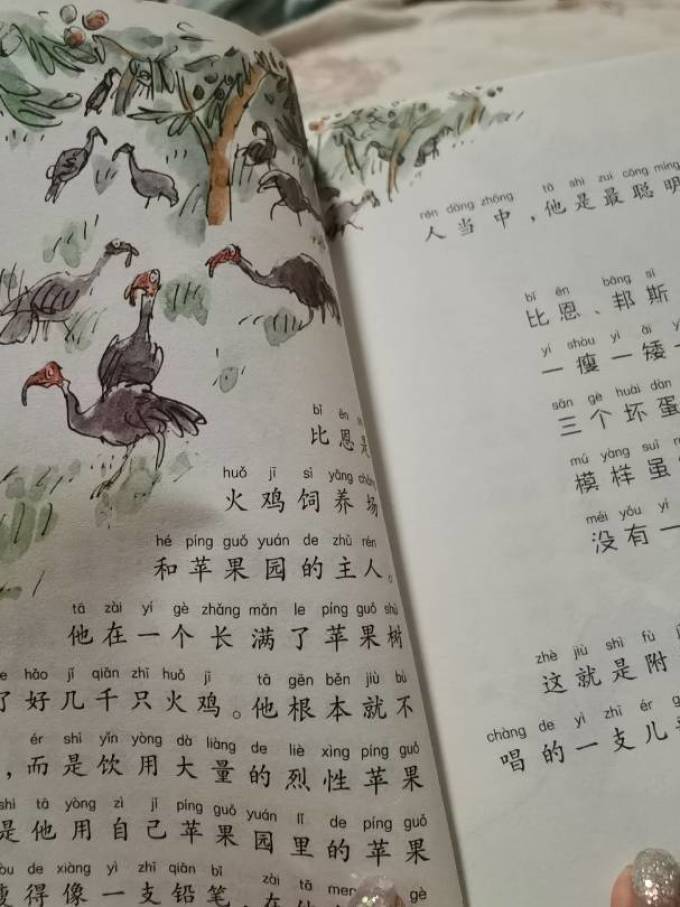 bǐ ēn
比恩是
huǒ jī sì yǎng chǎng
火鸡饲养场
hé píng guǒ yuán de zhǔ rén
和苹果园的主人。
tā zài yí gè zhǎng mǎn le píng guǒ shù
他在一个长满了苹果树
hǎo jǐ qiān zhī huǒ jī tā gēn běn jiù bù
了好几千只火鸡。他根本就不
ér shì yǐn yòng dà liàng de liè xìng píng guǒ
，而是饮用大量的烈性苹果
shì tā yòng zì jǐ píng guǒ yuán lǐ de píng guǒ
是他用自己苹果园里的苹果
de xiàng yì zhī qiān bǐ zài tā men gè
瘦得像一支铅笔，在他
rén dāng zhōng tā shì zuì cōng míng
人当中，他是最聪明
bǐ ēn bāng sī
比恩、邦斯
yí shòu yì ǎi yí
一瘦一矮一
sān gè huài dàn
三个坏蛋
mú yàng suī
模样虽
méi yǒu yí
没有一
zhè jiù shì fù
这就是附
chàng de yì zhī ér
唱的一支儿